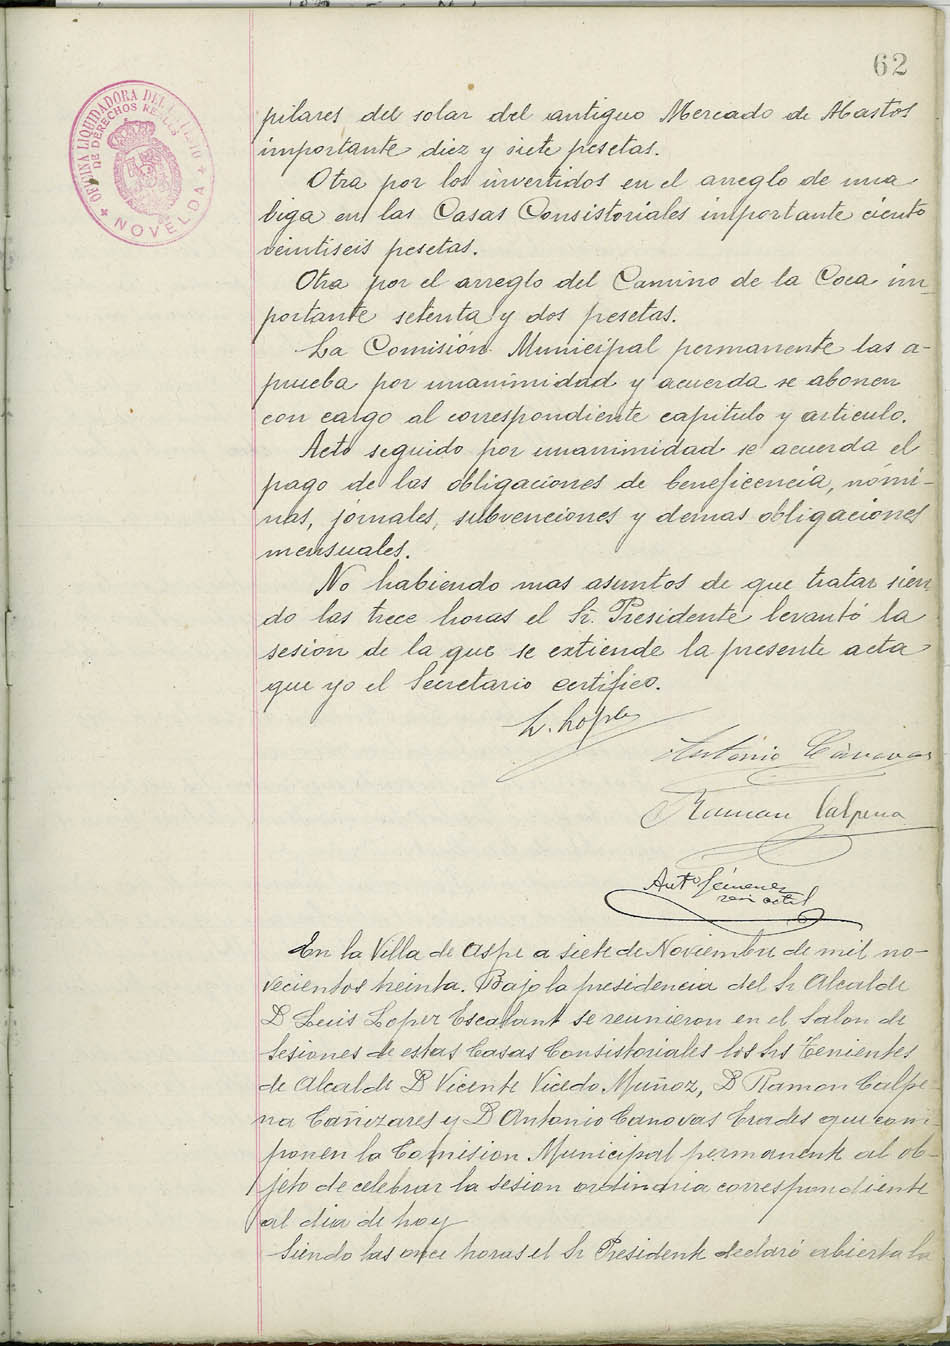 62
OFICINA LIQUIDADORA DEL
DE DERECHOS REALES
NOVELDA
pilares del solar del antiguo Mercado de Abastos
importante diez y siete pesetas.
Otra por los invertidos en el arreglo de una
biga en las Casas Consistoriales importante ciento
veintiseis pesetas.
Otra por el arreglo del Camino de la Coca im-
portante setenta y dos pesetas.
La Comisión Municipal permanente las a-
prueba por unanimidad y acuerda se abonen
con cargo al correspondiente capitulo y articulo.
Acto seguido por unanimidad se acuerda el
pago de las obligaciones de beneficencia, nómi-
nas, jornales, subvenciones y demas obligaciones
mensuales.
No habiendo mas asuntos de que tratar sien-
do las trece horas el Sr. Presidente levantó la
sesion de la que se extiende la presente acta
que yo el Secretario certifico.
L. López
Antonio Cánovas
Ramon Calpena
Antº Gimenez
En la Villa de Aspe a siete de Noviembre de mil no-
vecientos treinta. Bajo la presidencia del Sr Alcalde
D Luis Lopez Escalant se reunieron en el Salon de
Sesiones de estas Casas Consistoriales los Srs Tenientes
de Alcalde D Vicente Vicedo Muñoz, D Ramon Calpe-
na Cañizares y D Antonio Canovas Erades que com-
ponen la Comision Municipal permanente al ob-
jeto de celebrar la sesion ordinaria correspondiente
al dia de hoy
Siendo las once horas el Sr Presidente declaró abierta la